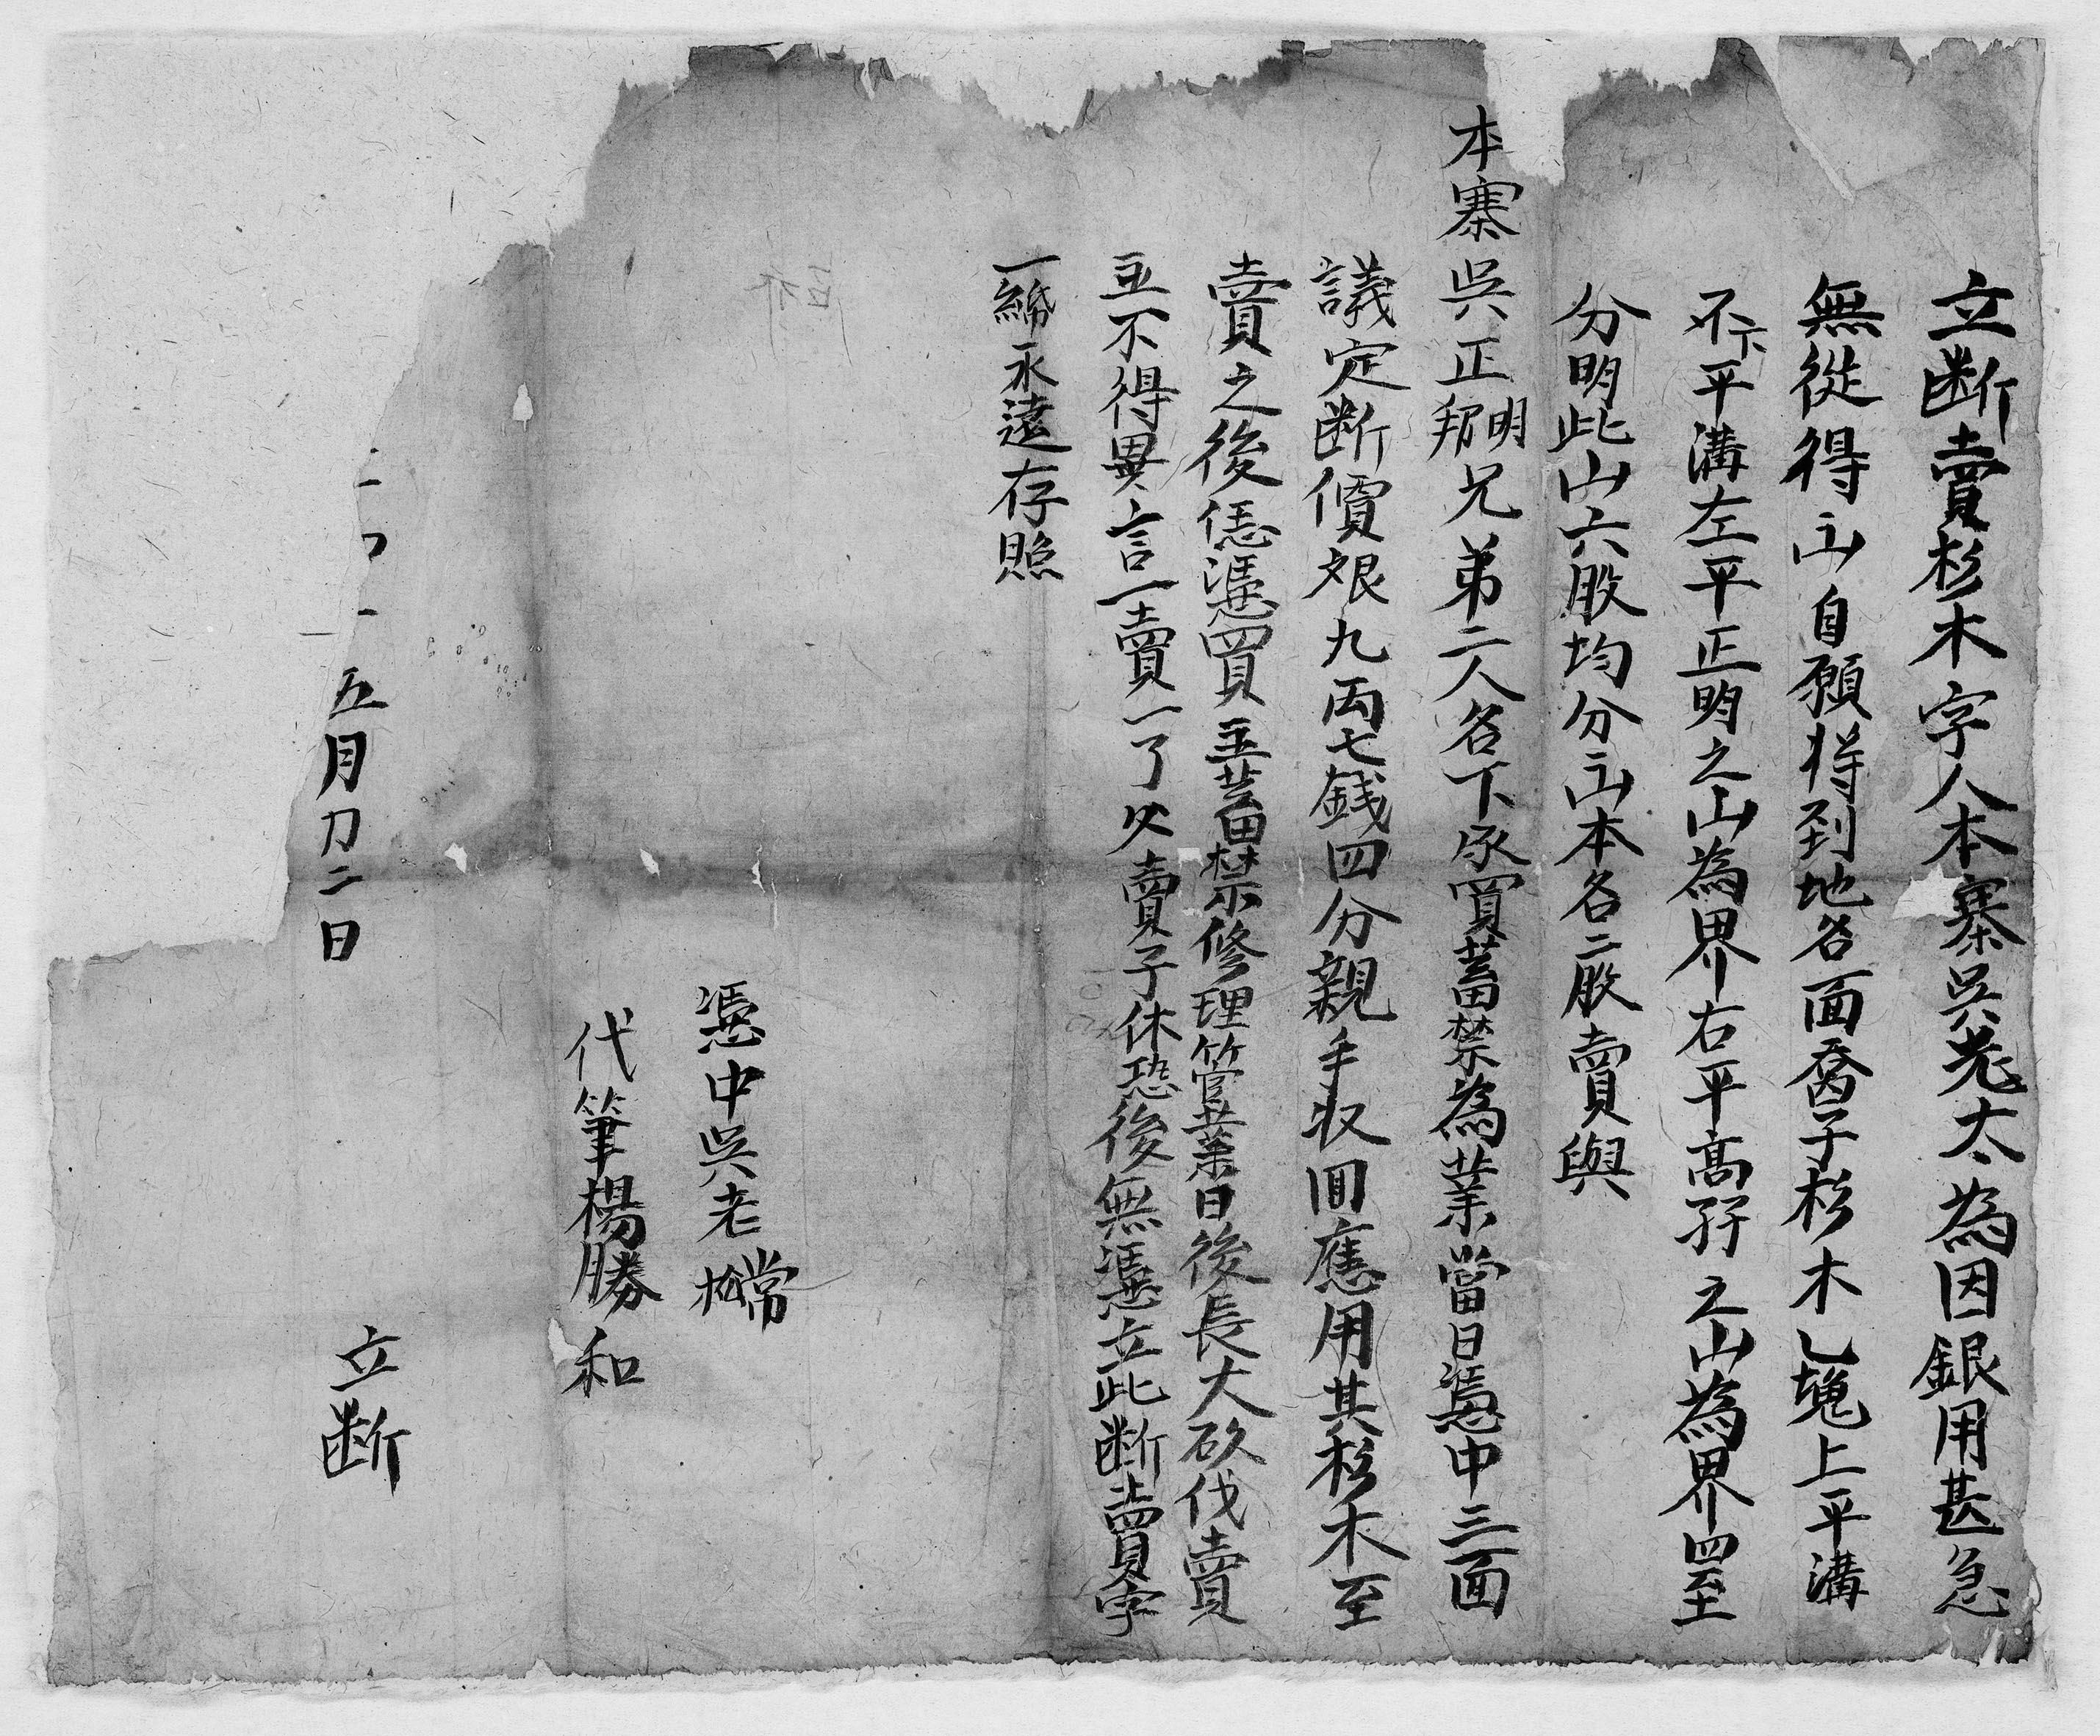 立断賣杉木字人本寨吳老太為因銀用甚急
無從得出自願将到地名面喬子杉木乚塊上平溝
下平溝左平正明之山為界右平髙孖之山為界四至
分明此山六股均分出本名二股賣與
本寨吳正明兄弟二人名下承買蓄禁為業當日憑中三面
議定断價艮九両七銭四分親手収囬應用其杉木至
賣之後憑買主蓄禁修理管業日後長大砍伐賣
主不得異言一賣一了父賣子休恐後無憑立此断賣字
一紙永遠存照
憑中吳老常松
代筆楊勝和
五月初二日 立断